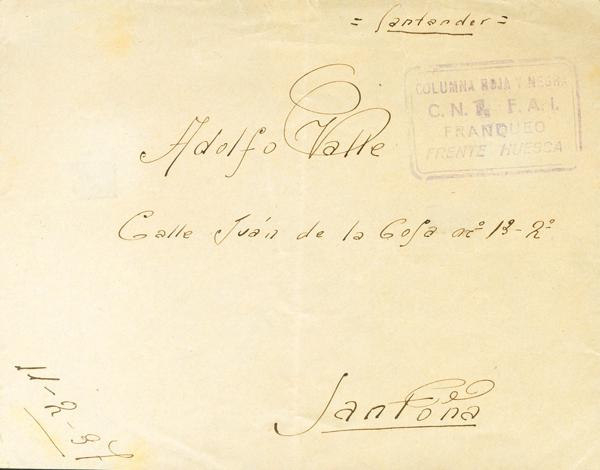 = Santander =
COLUMNA ROJA Y NEGRA
C.N.T. F.A.I.
FRANQUEO
FRENTE HUESCA
Adolfo Valle
Calle Juán de la Cosa nº 13-2º
Santoña
11-2-37